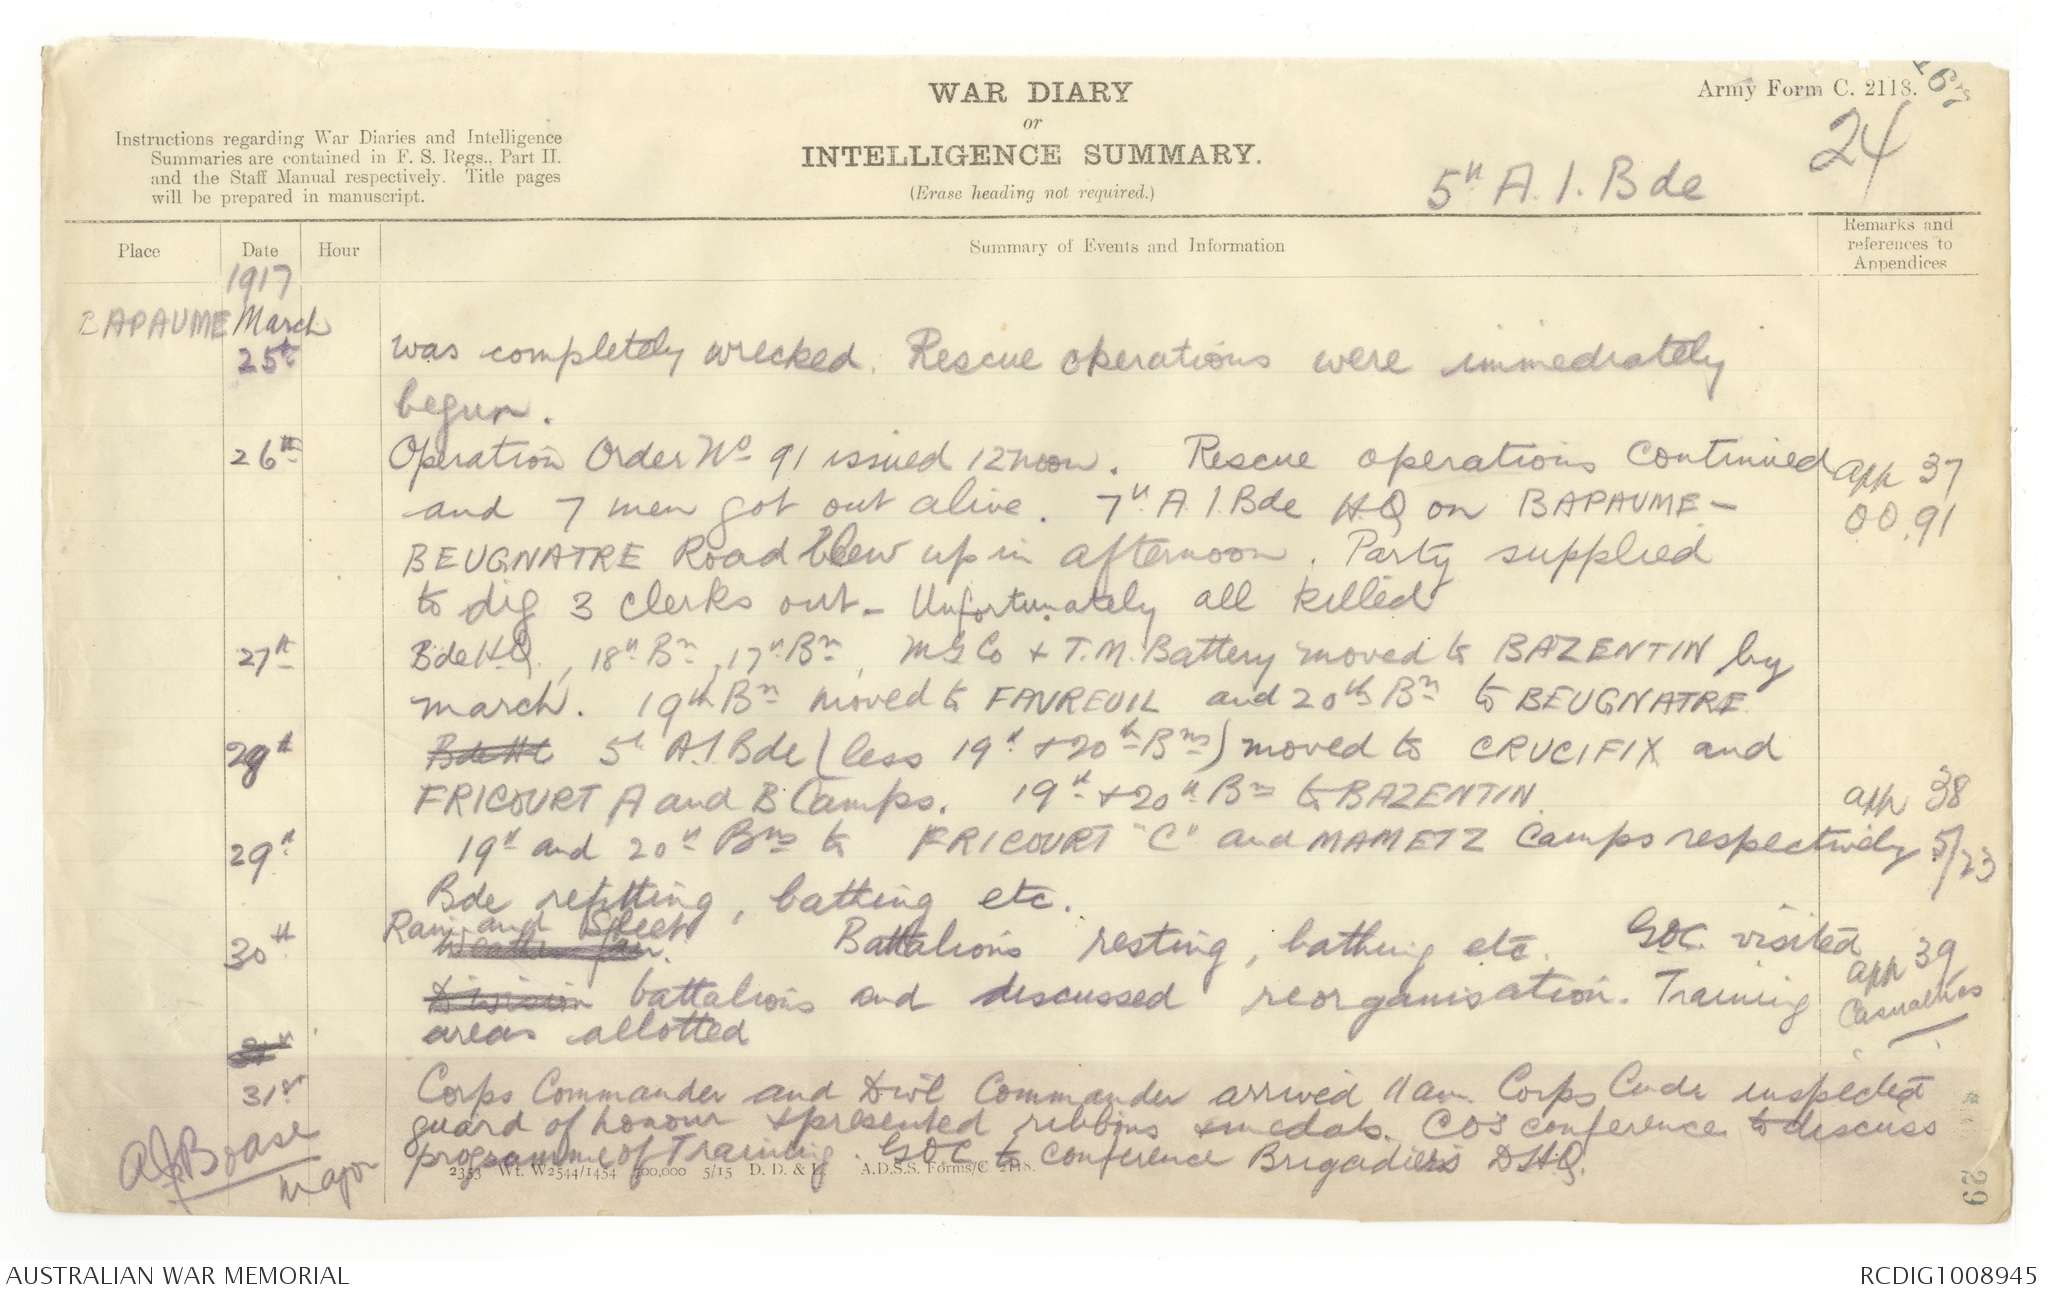 WAR DIARY
or
INTELLIGENCE SUMMARY.
(Erase heading not required.)
Army Form C. 2118.
24
5th A.I.Bde
Instructions regarding War Diaries and Intelligence
Summaries are contained in F. S. Regs., Part II.
and the Staff Manual respectively. Title pages
will be prepared in manuscript.
Place
Date
Hour
Summary of Events and Information
Remarks and
references to
Appendices
1917
BAPAUME March
25th was completely wrecked. Rescue operations were immediately
begun.
26th Operation Order No 91 issued 12 noon. Rescue operations continued app 37
and 7 men got out alive. 7th A.I.Bde H.Q on BAPAUME- OO.91
BEUGNATRE Road blew up in afternoon. Party supplied
to dig 3 clerks out - Unfortunately all killed
27th Bde H.Q., 18th Bn, 17th Bn, MG Co + T.M. Battery moved to BAZENTIN by
march. 19th Bn moved to FAVREUIL and 20th Bn to BEUGNATRE
28th Bde H 5th A.I.Bde (less 19th + 20th Bns) moved to CRUCIFIX and
FRICOURT A and B Camps. 19th + 20th Bns to BAZENTIN. app 38
29th 19th and 20th Bns to FRICOURT "C" and MAMETZ Camps respectively 5/23
Bde refitting, bathing etc.
Rain and Sleet
30th Weather fair. Battalions resting, bathing etc. GOC. visited app 39
Division battalions and discussed reorganisation. Training Casualties
areas allotted
31st Corps Commander and Divl Commander arrived 11 am. Corps Cmdr inspected
guard of honour & presented ribbons & medals. CO's conference to discuss
programme of Training. GOC to conference Brigadiers DHQ.
AJ Boase
Major
2353 Wt. W2544/1454 700,000 5/15 D. D. & L. A.D.S.S. Forms/C 2118.
29
AUSTRALIAN WAR MEMORIAL
RCDIG1008945